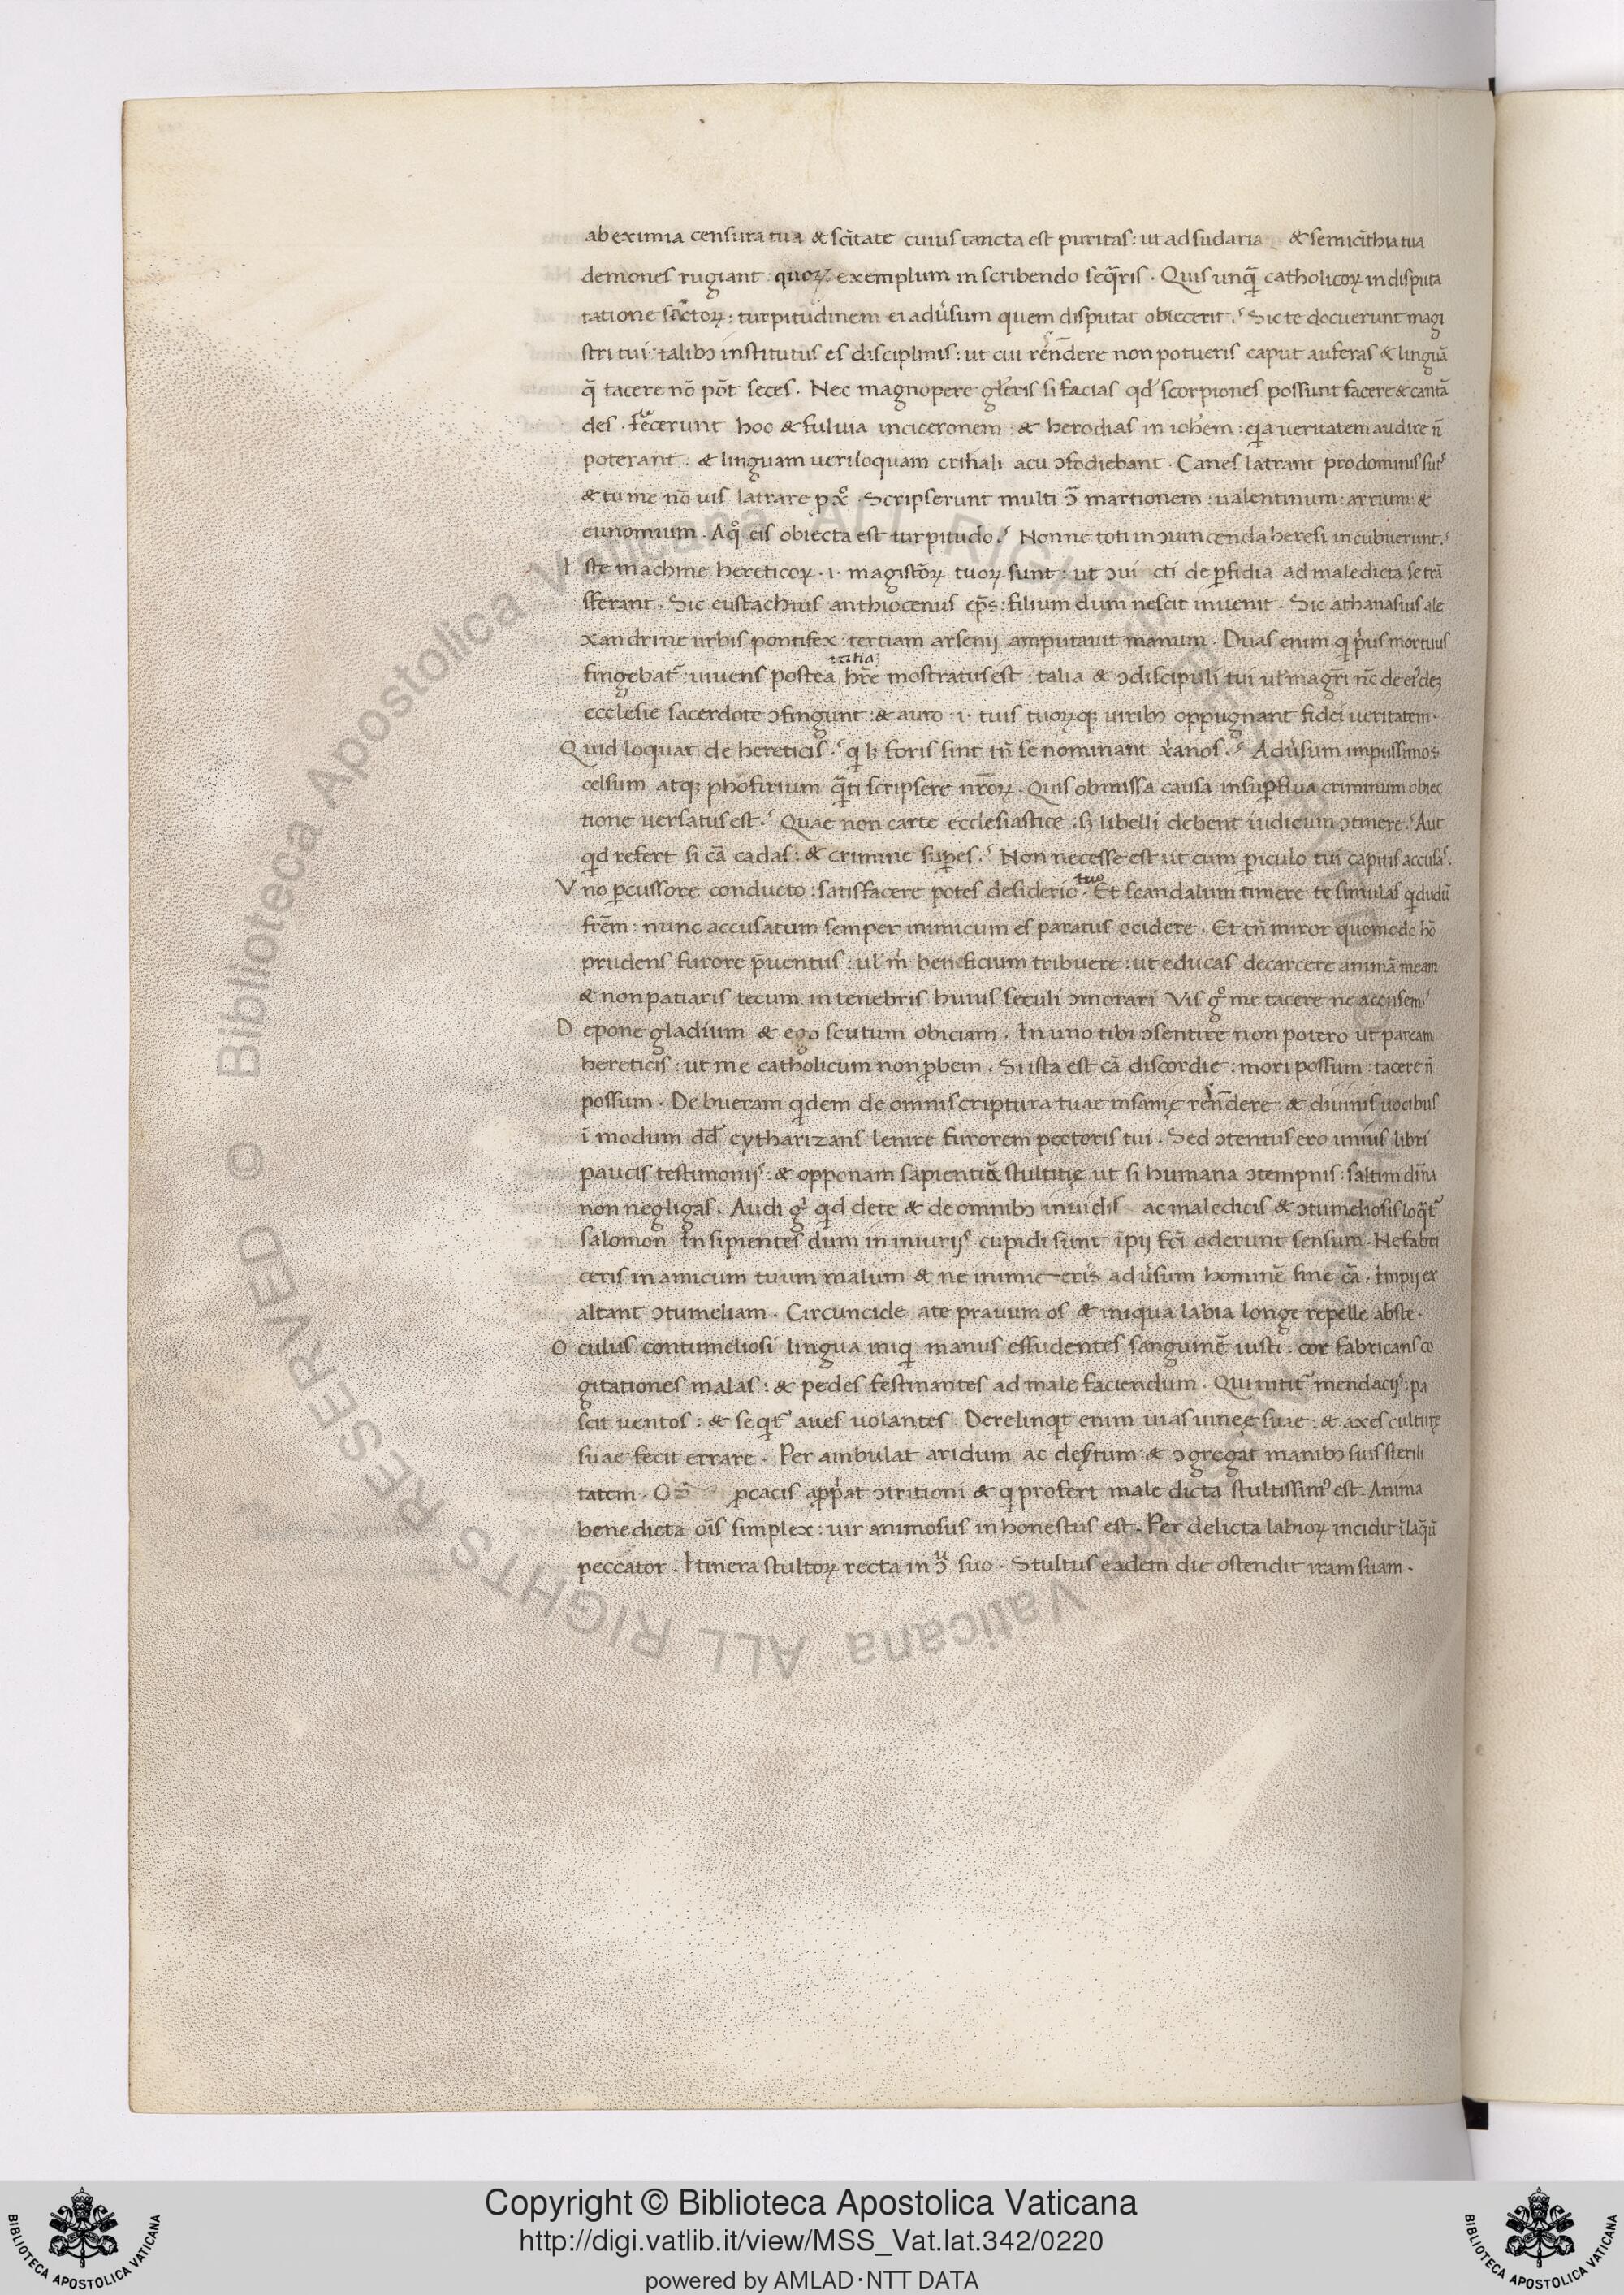 ab eximia censura tua & scītate cuius tancta est puritas: ut ad sudaria & semicīthia tua
demones rugiant: quoꝝ exemplum in scribendo seq̄ris. Quis unq̄ catholicoꝝ in disputa
tatione sectoꝝ: turpitudinem ei adūsum quem disputat obiecerit? Sic te docuerunt magi
stri tui: talibꝫ institutus es disciplinis: ut cui rēn̄dere non potueris caput auferas & linguā
q̄ tacere nō pōt seces. Nec magnopere gl̄eris si facias qđ scorpiones possunt facere & cantā
des. Fecerunt hoc & fuluia in ciceronem: & herodias in ioh̄em: qia ueritatem audire n̄
poterant. & linguam ueriloquam crinali acu ꝯfodiebant. Canes latrant pro dominis suis
& tu me nō uis latrare p xo̊. Scripserunt multi ꝯ̄ martionem: ualentinum: arrium: &
eunomium. A qo̊ eis obiecta est turpitudo? Nonne toti in ꝯuincenda heresi incubuerunt?
Iste machine hereticoꝝ .i. magistōꝝ tuoꝝ sunt: ut ꝯui cti de ꝑfidia ad maledicta se trā
sferant. Sic eustachius anthiocenus ep̄s: filium dum nescit inuenit. Sic athanasius ale
xandrine urbis pontifex: tertiam arsenij amputauit manum. Duas enim qi pr̄us mortuus
fingebat᷑: uiuens postea hr̄e mostratus est: talia & ꝯdiscipuli tui ul̄ magr̄i nc̄ de ei᷒dez
ecclesie sacerdote ꝯfingunt: & auro .i. tuis tuoꝝqꝫ uiribꝫ oppugnant fidei ueritatem.
Quid loquar de hereticis? qi lꝫ foris sint tn̄ se nominant xr̄anos? Adūsum impiissimos
celsum atqꝫ phofirium q̄ti scripsere nr̄oꝝ. Quis obmissa causa in suꝑflua criminum obiec
tione uersatus est? Quae non carte ecclesiastice: sꝫ libelli debent iudicum ꝯtinere? Aut
qd refert si cā cadas: & crimine suꝑes? Non necesse est ut cum ꝑiculo tui capitis accusas.
Vno ꝑcussore conducto: satisfacere potes desiderio tuo. Et scandalum timere te simulas qi dudū
frēm: nunc accusatum semper inimicum es paratus ocidere. Et tn̄ miror quomodo hō
prudens furore p̄uentus: ul̄ m̄ beneficium tribuere: ut educas de carcere animā meam
& non patiaris tecum in tenebris huius seculi ꝯmorari Vis go̊ me tacere ne accusem?
Depone gladium & ego scutum obiciam. In uno tibi ꝯsentire non potero ut paream
hereticis: ut me catholicum non ꝓbem. Si ista est cā discordie: mori possum: tacere n̄
possum. Debueram qidem de omni scriptura tuae insanię rēn̄dere: & diuinis uocibus
ī modum dd̄ cytharizans lenire furorem pectoris tui. Sed ꝯtentus ero unius libri
paucis testimonijs: & opponam sapientiā stultitię ut si humana ꝯtempnis: saltim diīna
non negligas. Audi gi qid de te & de omnibꝫ inuidis ac maledicis & ꝯtumeliosis loq̄t᷑
salomon Insipientes dum in iniurijs cupidi sunt īpij fc̄i oderunt sensum. Ne fabri
ceris in amicum tuum malum & ne inimiceris adūsum hominē sine cā. Impij ex
altant ꝯtumeliam. Circuncide a te prauum os & iniqua labia longe repelle abs te.
Oculus contumeliosi lingua iniqi manus effudentes sanguinē iusti: cor fabricans co
gitationes malas: & pedes festinantes ad male faciendum. Qui nitit᷑ mendacijs: pa
scit uentos: & seqit᷑ aues uolantes. Derelinqit enim uias uineę suae: & axes culturę
suae fecit errare. Perambulat aridum ac desertum: & ꝯgregat manibꝫ suis sterili
tatem. Os ꝓcacis app̄at ꝯtritioni & qi profert maledicta stultissim᷒ est. Anima
benedicta oīs simplex: uir animosus inhonestus est. Per delicta labioꝝ incidit ī laq̄ū
peccator. Itinera stultoꝝ recta in ꝯ̄ suo. Stultus eadem die ostendit iram suam.
© Biblioteca Apostolica Vaticana ALL RIGHTS RESERVED
Copyright © Biblioteca Apostolica Vaticana
http://digi.vatlib.it/view/MSS_Vat.lat.342/0220
powered by AMLAD·NTT DATA
BIBLIOTECA APOSTOLICA VATICANA
BIBLIOTECA APOSTOLICA VATICANA